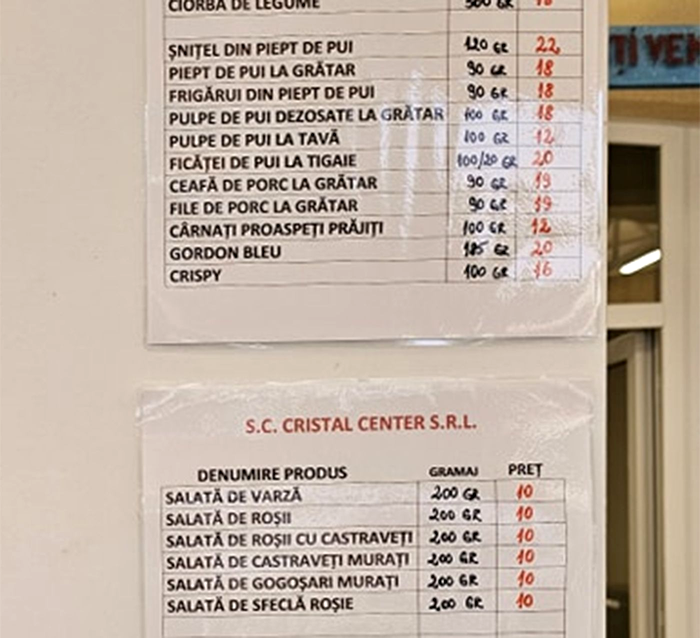 CIORBĂ DE LEGUME 500 GR
ȘNIȚEL DIN PIEPT DE PUI 120 GR 22
PIEPT DE PUI LA GRĂTAR 90 GR 18
FRIGĂRUI DIN PIEPT DE PUI 90 GR 18
PULPE DE PUI DEZOSATE LA GRĂTAR 100 GR 18
PULPE DE PUI LA TAVĂ 100 GR 12
FICĂȚEI DE PUI LA TIGAIE 100/20 GR 20
CEAFĂ DE PORC LA GRĂTAR 90 GR 19
FILE DE PORC LA GRĂTAR 90 GR 19
CÂRNAȚI PROASPEȚI PRĂJIȚI 100 GR 12
GORDON BLEU 185 GR 20
CRISPY 100 GR 16
ȚI VEN
S.C. CRISTAL CENTER S.R.L.
DENUMIRE PRODUS GRAMAJ PREȚ
SALATĂ DE VARZĂ 200 GR 10
SALATĂ DE ROȘII 200 GR 10
SALATĂ DE ROȘII CU CASTRAVEȚI 200 GR 10
SALATĂ DE CASTRAVEȚI MURAȚI 200 GR 10
SALATĂ DE GOGOȘARI MURAȚI 200 GR 10
SALATĂ DE SFECLĂ ROȘIE 200 GR 10